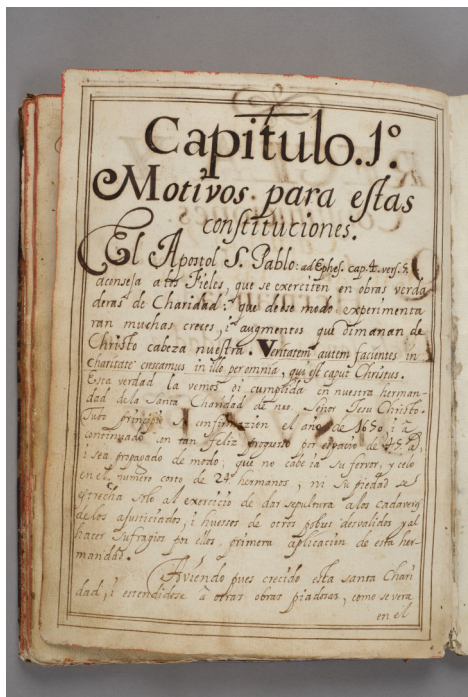 Capitulo. 1º.
Motivos para estas
constituciones.
El Apostol S. Pablo: ad Ephes. cap. 4. vers.
aconseja a los Fieles, que se exerciten en obras verda
deras de Charidad: i que de ese modo experimenta
ran muchas creces, i augmentos que dimanan de
Christo cabeza nuestra. Veritatem autem facientes in
charitate crescamus in illo per omnia, qui est caput Christus.
Esta verdad la vemos oi cumplida en nuestra herman-
dad de la Santa Charidad de nro. Señor Jesu Christo.
Tubo principio, i confirmacion el año de 1650 i à
continuado con tan feliz progreso por espacio de
i sea propagado de modo, que no cabe ia su fervor, y celo
en el numero corto de 24 hermanos, ni su piedad se
estrecha solo al exercicio de dar sepultura a los cadaveres
de los ajusticiados, i huessos de otros pobres desvalidos y al
hacer sufragios por ellos, primera aplicacion de esta her-
mandad.
Aviendo pues crecido esta santa Chari
dad, i estendidose à otras obras piadosas, como se vera
en el